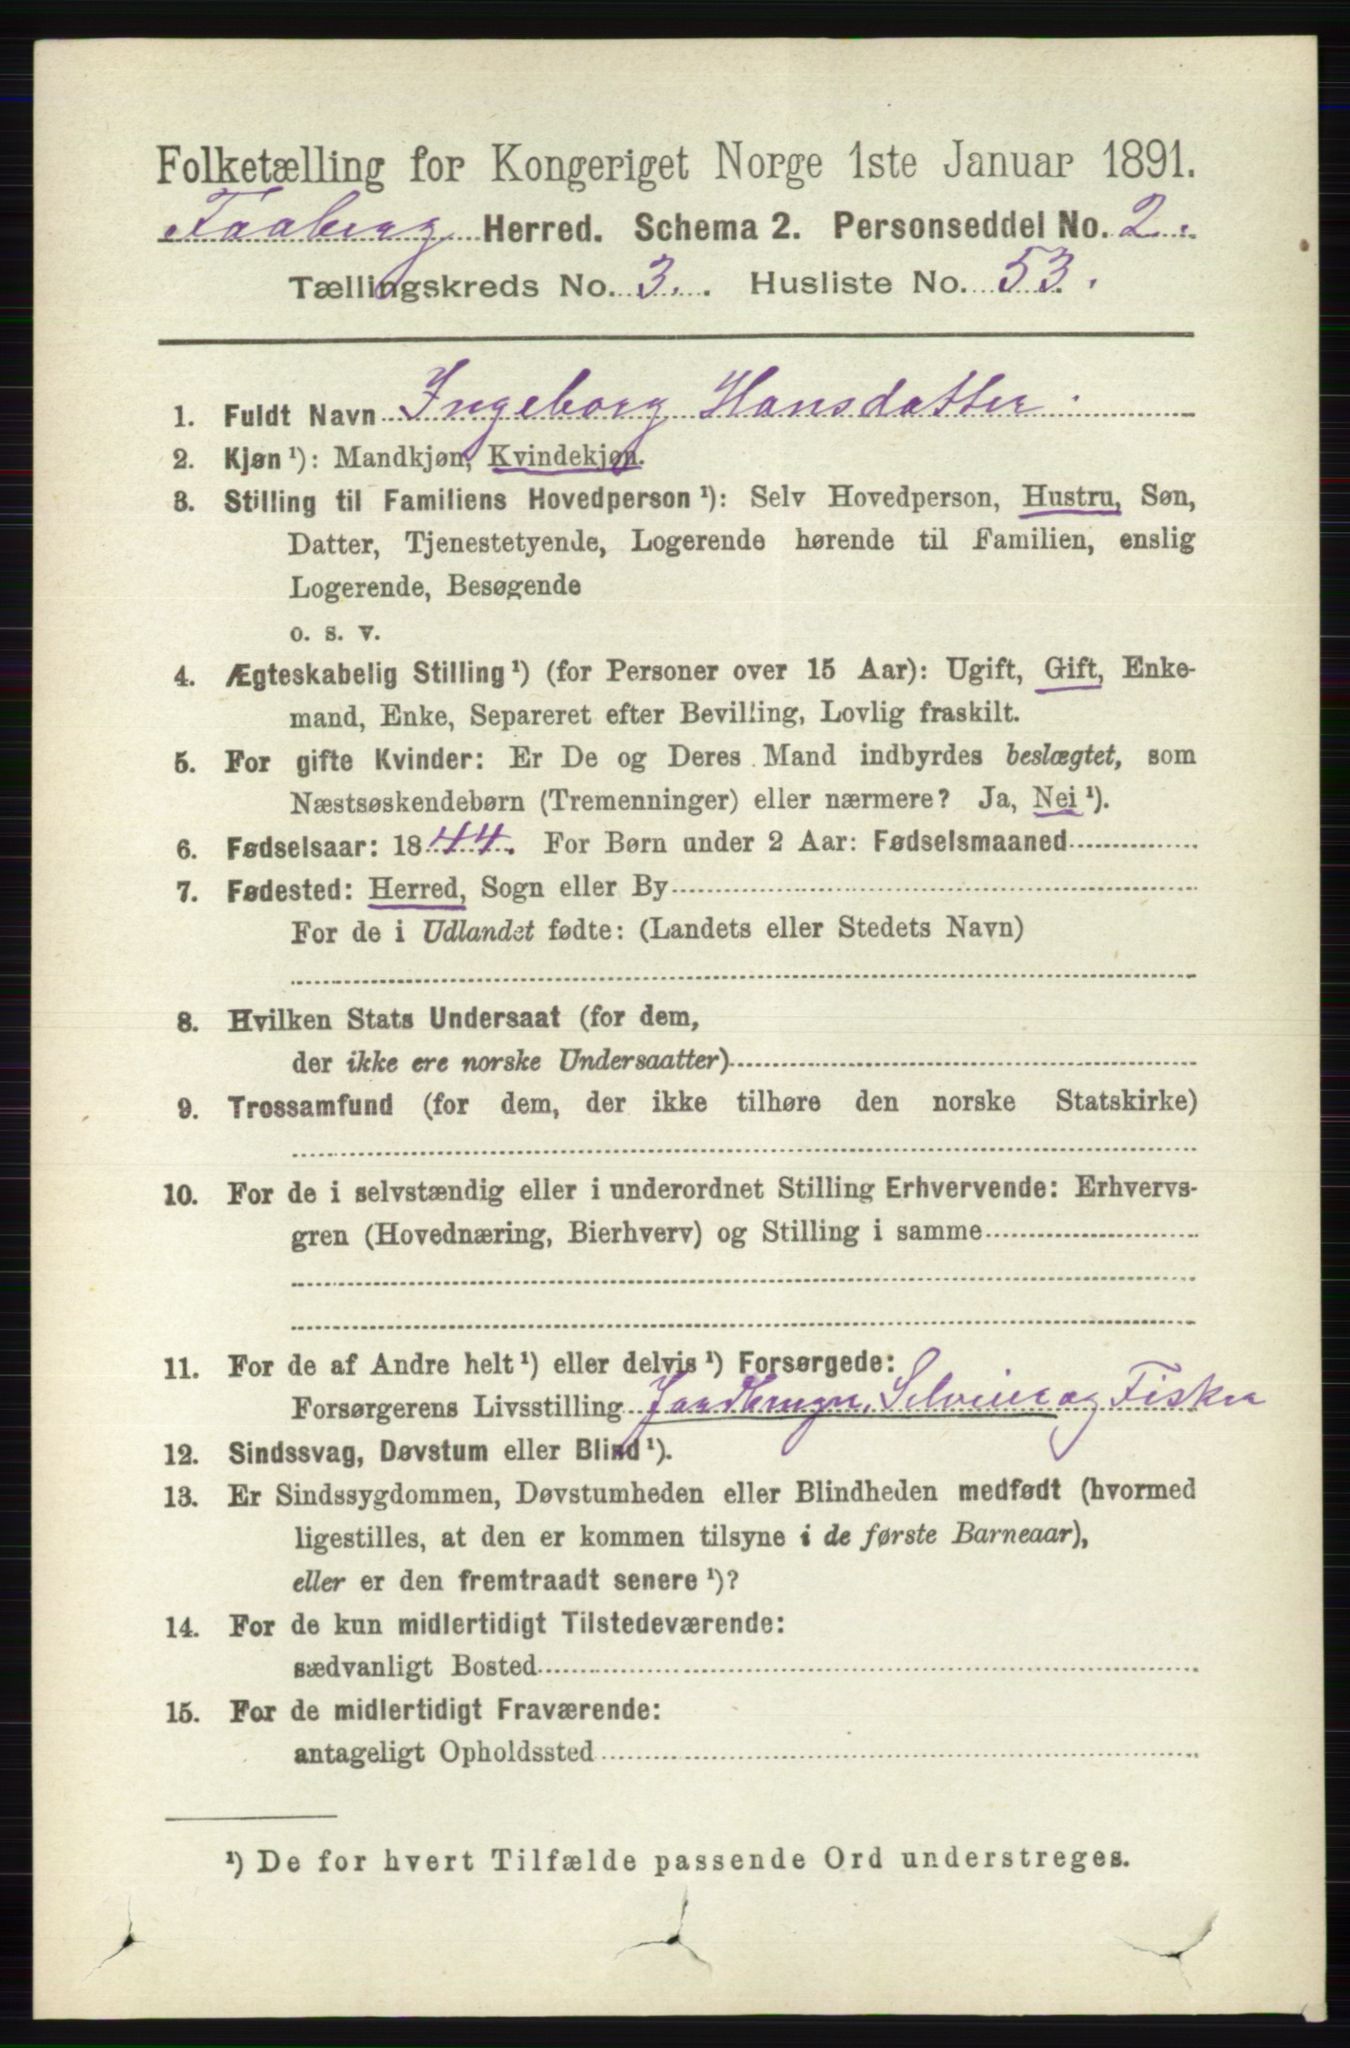 Folketælling for Kongeriget Norge 1ste Januar 1891.
Faaberg Herred. Schema 2. Personseddel No. 2.
Tællingskreds No. 3. Husliste No. 53.
1. Fuldt Navn Ingeborg Hansdatter
2. Kjøn ¹): Mandkjøn, Kvindekjøn.
3. Stilling til Familiens Hovedperson ¹): Selv Hovedperson, Hustru, Søn,
Datter, Tjenestetyende, Logerende hørende til Familien, enslig
Logerende, Besøgende
o. s. v.
4. Ægteskabelig Stilling ¹) (for Personer over 15 Aar): Ugift, Gift, Enke-
mand, Enke, Separeret efter Bevilling, Lovlig fraskilt.
5. For gifte Kvinder: Er De og Deres Mand indbyrdes beslægtet, som
Næstsøskendebørn (Tremenninger) eller nærmere? Ja, Nei ¹).
6. Fødselsaar: 1844. For Børn under 2 Aar: Fødselsmaaned
7. Fødested: Herred, Sogn eller By
For de i Udlandet fødte: (Landets eller Stedets Navn)
8. Hvilken Stats Undersaat (for dem,
der ikke ere norske Undersaatter)
9. Trossamfund (for dem, der ikke tilhøre den norske Statskirke)
10. For de i selvstændig eller i underordnet Stilling Erhvervende: Erhvervs-
gren (Hovednæring, Bierhverv) og Stilling i samme
11. For de af Andre helt ¹) eller delvis ¹) Forsørgede:
Forsørgerens Livsstilling Jordbruger, Selveier og Fisker
12. Sindssvag, Døvstum eller Blind ¹).
13. Er Sindssygdommen, Døvstumheden eller Blindheden medfødt (hvormed
ligestilles, at den er kommen tilsyne i de første Barneaar),
eller er den fremtraadt senere ¹)?
14. For de kun midlertidigt Tilstedeværende:
sædvanligt Bosted
15. For de midlertidigt Fraværende:
antageligt Opholdssted
¹) De for hvert Tilfælde passende Ord understreges.